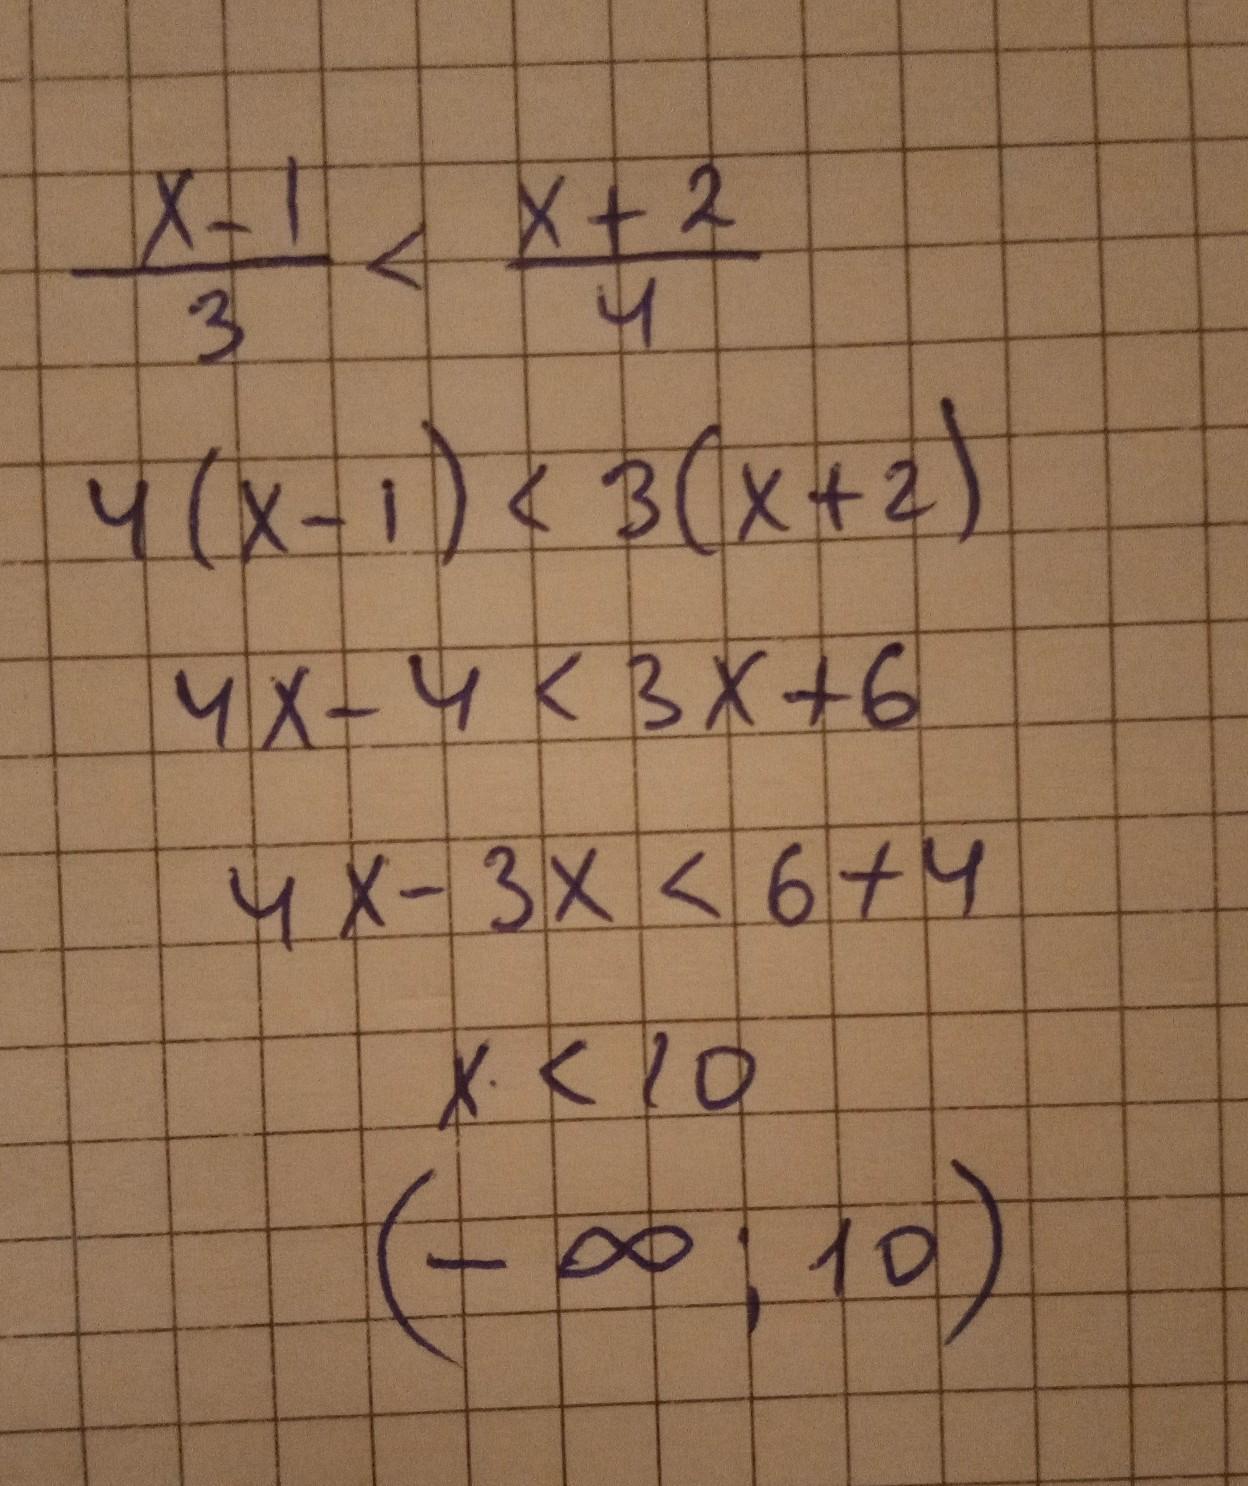 x-1/3 < x+2/4
4(x-1) < 3(x+2)
4x-4 < 3x+6
4x-3x < 6+4
x < 10
(-∞; 10)